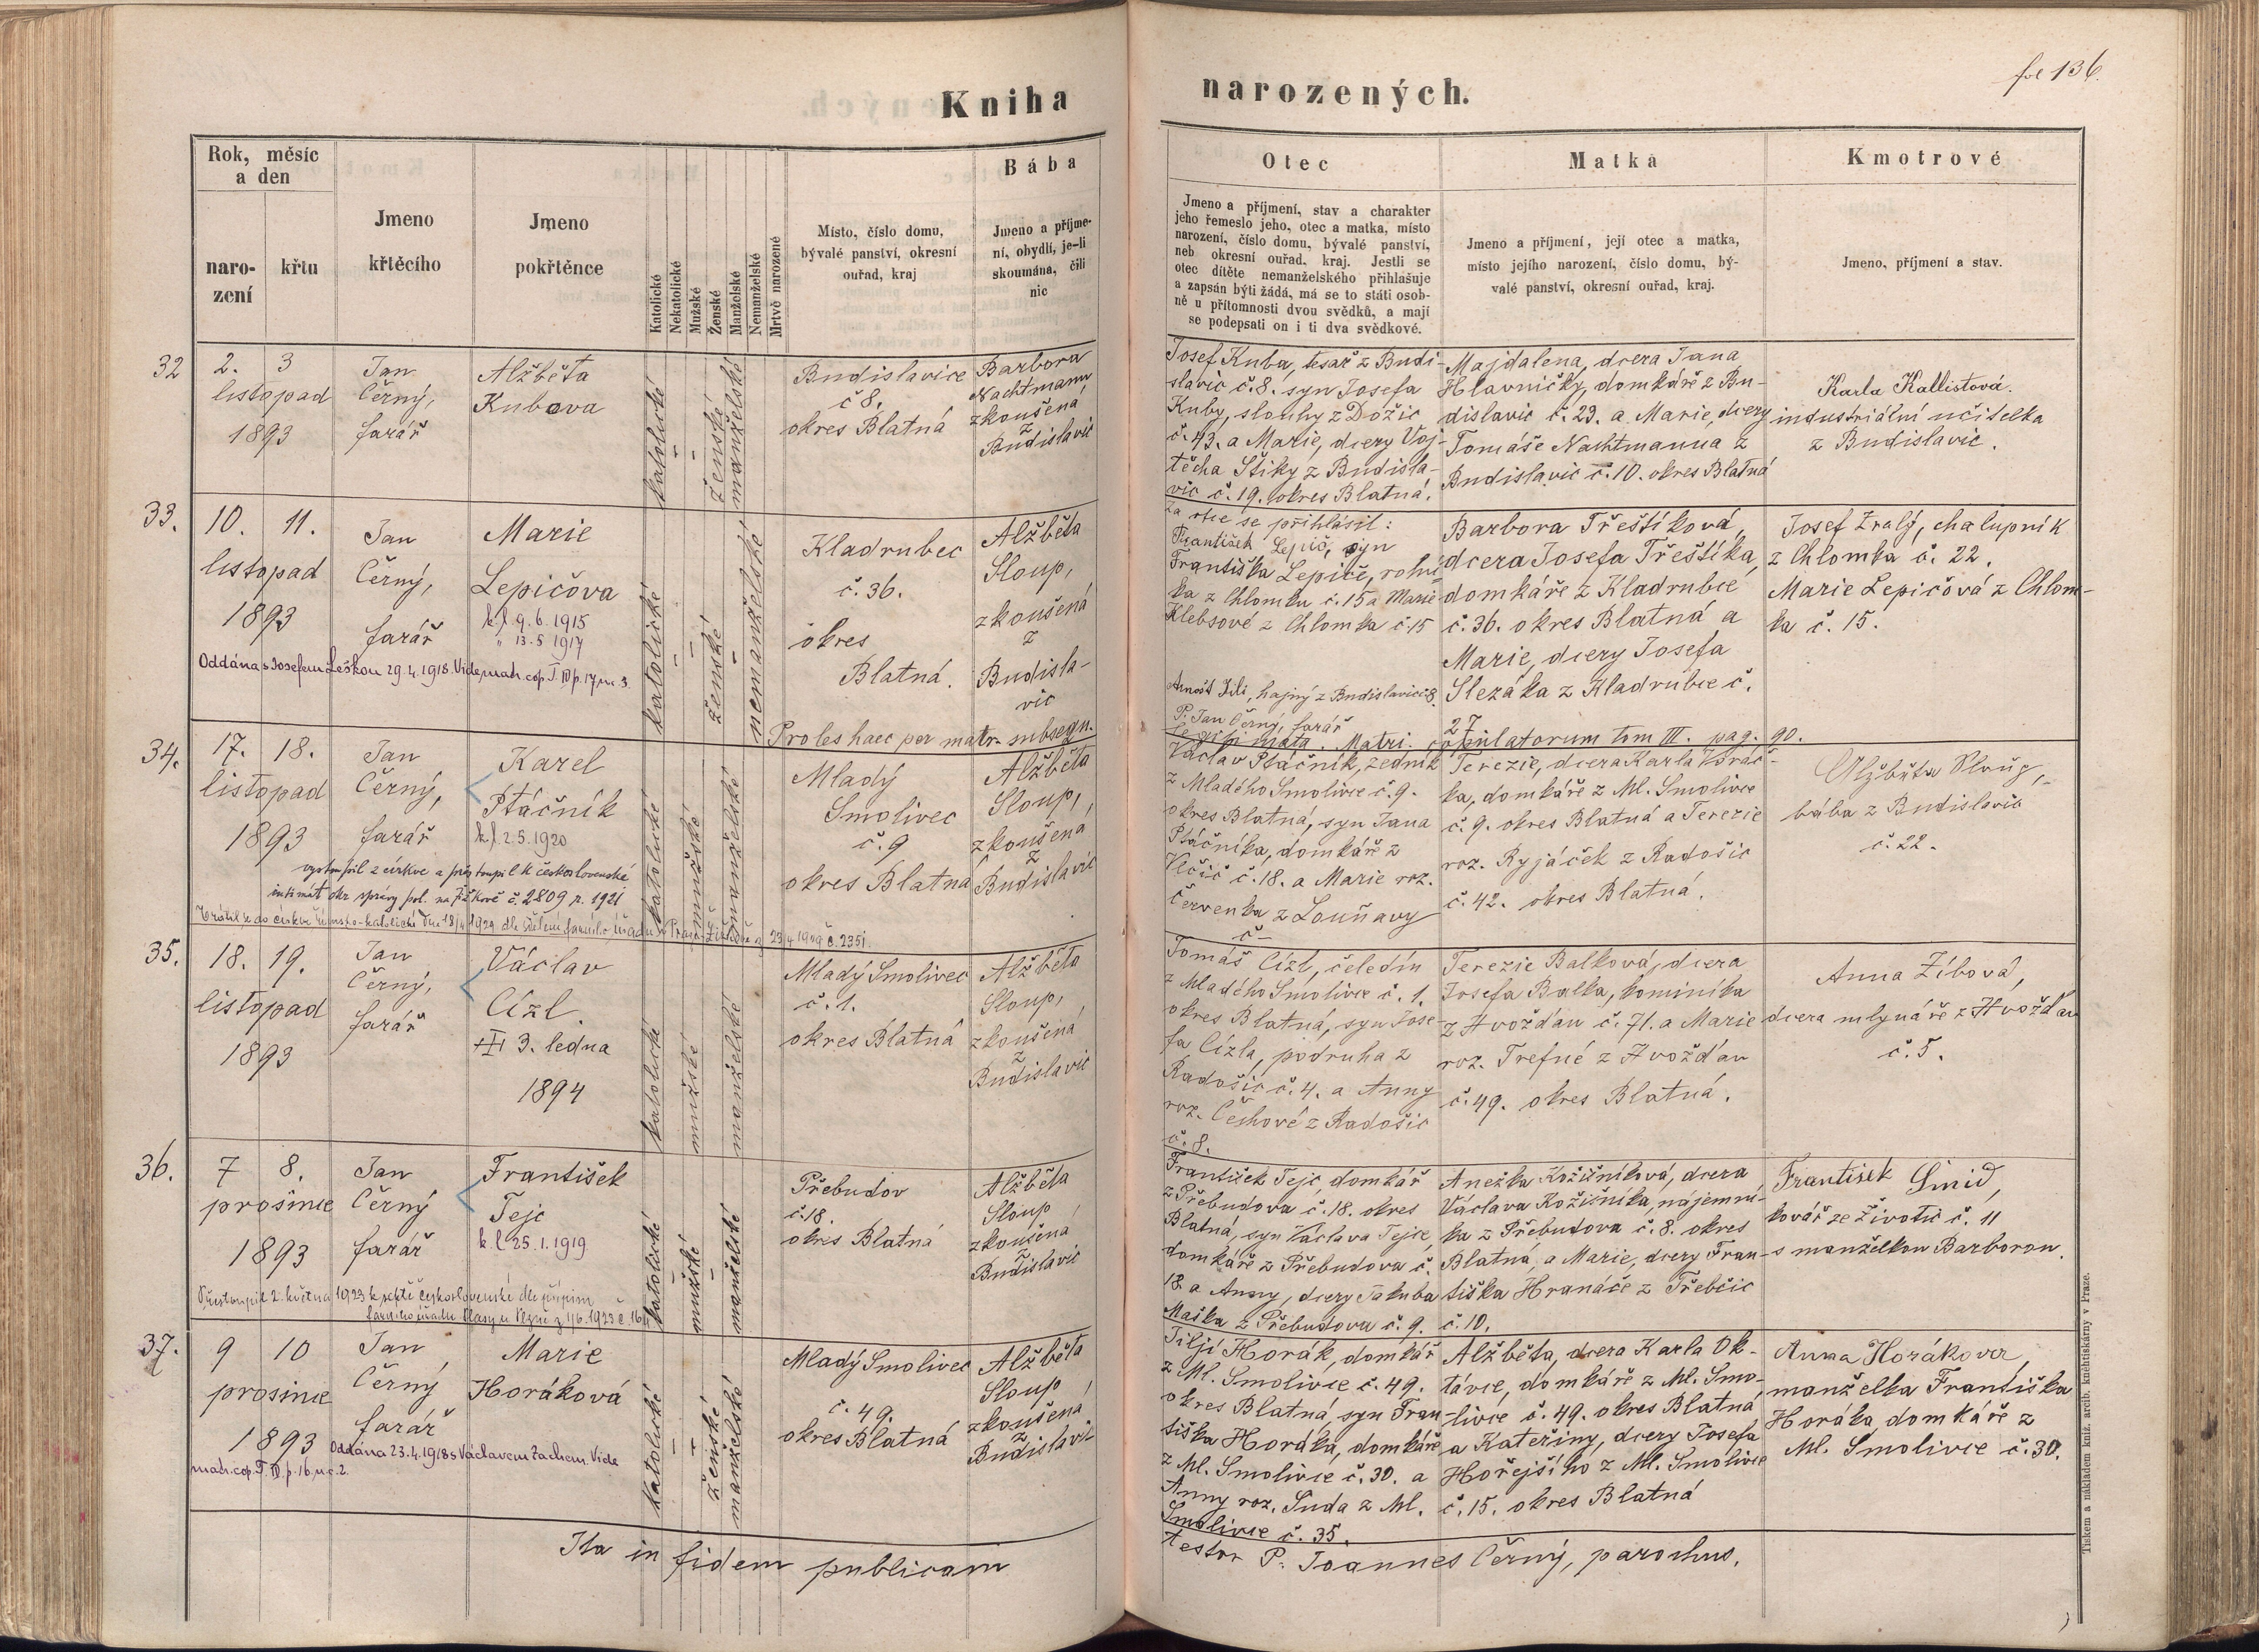 fol 136.
Kniha narozených.
Rok, měsíc
a den
naro-
zení
křtu
Jmeno
křtěcího
Jmeno
pokřtěnce
Katolické
Nekatolické
Mužské
Ženské
Manželské
Nemanželské
Mrtvě narozené
Místo, číslo domu,
bývalé panství, okresní
ouřad, kraj
Bába
Jmeno a příjme-
ní, obydlí, je-li
skoumána, čili
nic
Otec
Jmeno a příjmení, stav a charakter
jeho řemeslo jeho, otec a matka, místo
narození, číslo domu, bývalé panství,
neb okresní ouřad, kraj. Jestli se
otec dítěte nemanželského přihlašuje
a zapsán býti žádá, má se to státi osob-
ně u přítomnosti dvou svědků, a mají
se podepsati on i ti dva svědkové.
Matka
Jmeno a příjmení, její otec a matka,
místo jejího narození, číslo domu, bý-
valé panství, okresní ouřad, kraj.
Kmotrové
Jmeno, příjmení a stav.
32
2. 3
listopad
1893
Jan
Černý,
farář
Alžběta
Kubova
katolické
ženské
manželské
Budislavice
č 8.
okres Blatná
Barbora
Nachtmann
zkoušená
z
Budislavic
Josef Kuba, tesař z Budi-
slavic č. 8. syn Josefa
Kuby, slouhy z Dožic
č. 43. a Marie, dcery Voj-
těcha Štiky z Budisla-
vic č. 19. okres Blatná.
Majdalena, dcera Jana
Hlavničky, domkáře z Bu-
dislavic č. 23. a Marie, dcery
Tomáše Nachtmanna z
Budislavic č. 10. okres Blatná
Karla Kallistová.
industriální učitelka
z Budislavic.
33.
10. 11.
listopad
1893
Jan
Černý,
farář
Marie
Lepičova
k.l. 9. 6. 1915
" 13. 5 1917
Oddána s Josefem Leškou 29. 4. 1918. Vide matr. cop. T. III p. 17, nr. 3.
katolické
ženské
nemanželské
Kladrubec
č. 36.
okres
Blatná.
Alžběta
Sloup,
zkoušená
z
Budisla-
vic
Za otce se přihlásil:
František Lepič, syn
Františka Lepiče, rolní-
ka z Chlomku č. 15 a Marie
Klebsové z Chlomka č. 15
Arnošt Jili, hajný z Budislavic č 8.
P. Jan Černý, farář
Barbora Třeštíková,
dcera Josefa Třeštíka,
domkáře z Kladrubce
č. 36. okres Blatná a
Marie, dcery Josefa
Slezáka z Kladrubce č.
27
Josef Zralý, chalupník
z Chlomka č. 22.
Marie Lepičová z Chlom-
ka č. 15.
Proles haec per matr. subsequ. legitimata. Matri. copulatorum tom III. pag. 90.
34.
17. 18.
listopad
1893
Jan
Černý,
farář
Karel
Ptáčník
k.l. 2. 5. 1920
vystoupil z církve a přistoupil k československé
intimát okr. správy pol. na Žižkově č. 2809 r. 1921
Vrátil se do církve římsko-katolické dne 18/4 1929 dle sdělení farního úřadu v Praze-Žižkově z 23 4 1929 č. 2351.
katolické
mužské
manželské
Mladý
Smolivec
č. 9
okres Blatná
Alžběta
Sloup,
zkoušená
z
Budislavic
Václav Ptáčník, zedník
z Mladého Smolivce č. 9.
okres Blatná, syn Jana
Ptáčníka, domkáře z
Vlčic č. 18. a Marie roz.
Červenka z Louňavy
č –
Terezie, dcera Karla Vováč-
ka, domkáře z Ml. Smolivce
č. 9. okres Blatná a Terezie
roz. Ryjáček z Radošic
č. 42. okres Blatná.
Alžběta Sloup,
bába z Budislavic
č. 22.
35.
18. 19.
listopad
1893
Jan
Černý,
farář
Václav
Cízl.
3. ledna
1894
katolické
mužské
manželské
Mladý Smolivec
č. 1.
okres Blatná
Alžběta
Sloup,
zkoušená
z
Budislavic
Tomáš Cízl, čeledín
z Mladého Smolivce č. 1.
okres Blatná, syn Jose-
fa Cízla, podruha z
Radošic č. 4. a Anny
roz. Čechové z Radošic
č. 8.
Terezie Balková, dcera
Josefa Balka, kominíka
z Hvožďan č. 71. a Marie
roz. Trefné z Hvožďan
č. 49. okres Blatná.
Anna Zíbová,
dcera mlynáře z Hvožďan
č. 5.
36.
7 8.
prosince
1893
Jan
Černý
farář
František
Tejc
k.l 25. 1. 1919
Přestoupil 2. května 1923 k sektě československé dle přípisu
farního úřadu Plasy u Plzně z 1/6. 1923 č. 16
katolické
mužské
manželské
Přebudov
č. 18.
okres Blatná
Alžběta
Sloup
zkoušená
z
Budislavic
František Tejc, domkář
z Přebudova č. 18. okres
Blatná, syn Václava Tejce,
domkáře z Přebudova č.
18. a Anny, dcery Jakuba
Maška z Přebudova č. 9.
Anežka Kožišníková, dcera
Václava Kožišníka, nájemní-
ka z Přebudova č. 8. okres
Blatná, a Marie, dcery Fran-
tiška Hranáče z Třebčic
č. 10.
František Šmid,
kovář ze Životic č. 11
s manželkou Barborou.
37.
9 10
prosince
1893
Jan
Černý
farář
Marie
Horáková
Oddána 23. 4. 1918 s Václavem Zachem. Vide
matr. cop. T. III. p. 16, nr. 2.
katolické
ženské
manželské
Mladý Smolivec
č. 49.
okres Blatná
Alžběta
Sloup
zkoušená
z
Budislavic
Jiljí Horák, domkář
z Ml. Smolivce č. 49.
okres Blatná, syn Fran-
tiška Horáka, domkáře
z Ml. Smolivce č. 30. a
Anny roz. Suda z Ml.
Smolivce č. 35.
Alžběta, dcera Karla Ok-
távce, domkáře z Ml. Smo-
livce č. 49. okres Blatná
a Kateřiny, dcery Josefa
Hořejšího z Ml. Smolivce
č. 15. okres Blatná
Anna Horákova,
manželka Františka
Horáka domkáře z
Ml. Smolivce č. 30.
Ita in fidem publicam testor P. Joannes Černý, parochus.
Tiskem a nákladem kníž. arcib. knehtiskárny v Praze.